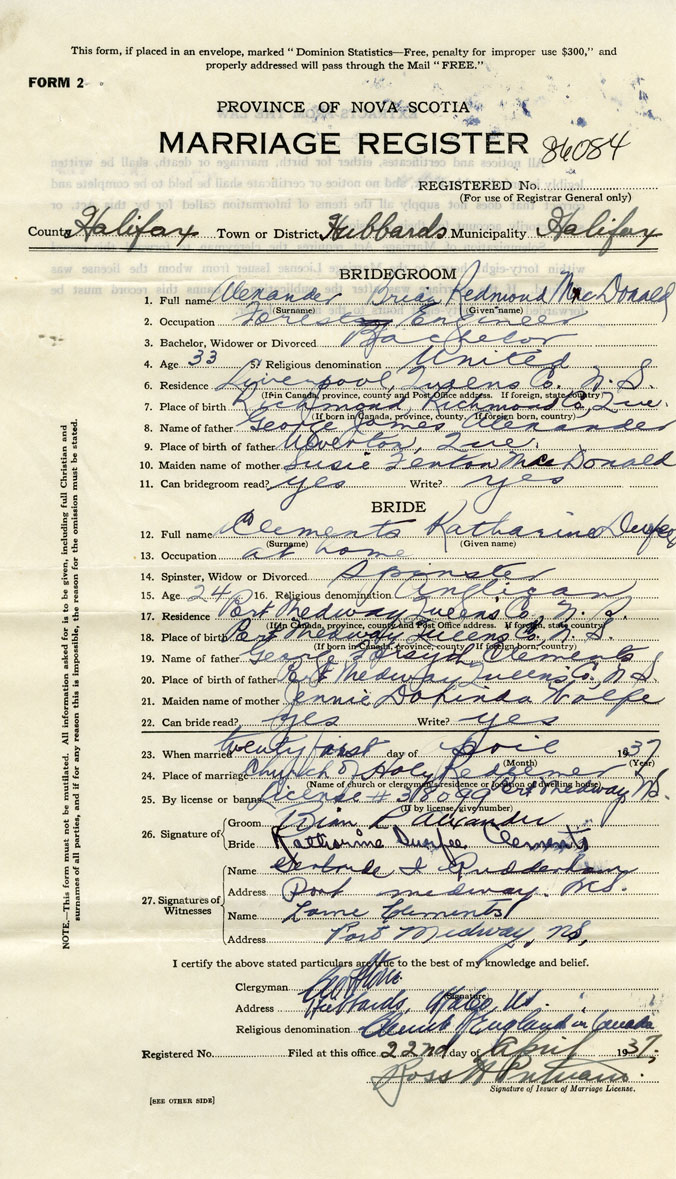 This form, if placed in an envelope, marked " Dominion Statistics—Free, penalty for improper use $300," and
properly addressed will pass through the Mail " FREE."
FORM 2
PROVINCE OF NOVA SCOTIA
MARRIAGE REGISTER 86084
REGISTERED No.
(For use of Registrar General only)
County Halifax Town or District Hubbards Municipality Halifax
BRIDEGROOM
1. Full name Alexander Brian Redmond MacDonald
(Surname) (Given name)
2. Occupation Forestry Engineer
3. Bachelor, Widower or Divorced Bachelor
4. Age 33 5. Religious denomination United
6. Residence Liverpool, Queens Co. N. S.
(If in Canada, province, county and Post Office address. If foreign, state country)
7. Place of birth Richmond, Richmond Co, Que.
(If born in Canada, province, county. If foreign born, country)
8. Name of father George James Alexander
9. Place of birth of father Ulverton, Que.
10. Maiden name of mother Susie Fenton MacDonald
11. Can bridegroom read? yes Write? yes
BRIDE
12. Full name Clements Katharine Durfee
(Surname) (Given name)
13. Occupation at home
14. Spinster, Widow or Divorced Spinster
15. Age 24 16. Religious denomination Anglican
17. Residence Port Medway Queens Co. N. S.
(If in Canada, province, county and Post Office address. If foreign, state country)
18. Place of birth Port Medway Queens Co. N. S.
(If born in Canada, province, county. If foreign born, country)
19. Name of father George Clements
20. Place of birth of father Port Medway Queens Co. N S
21. Maiden name of mother Jennie Dorinda Wolfe
22. Can bride read? yes Write? yes
23. When married twenty first day of April 1937
(Month) (Year)
24. Place of marriage Church of Holy Redeemer
(Name of church or clergyman's residence or location of dwelling house)
25. By license or banns License # Port Medway N.S.
(If by license, give number)
26. Signature of
Groom Brian R Alexander
Bride Katharine Durfee Clements
27. Signatures of Witnesses
Name Gertrude I
Address Port Medway. N.S.
Name Lorne Clements
Address Port Medway, NS,
I certify the above stated particulars are true to the best of my knowledge and belief.
Clergyman
(Signature)
Address Hubbards, N.S.
Religious denomination Church of England in Canada
Registered No. Filed at this office 22nd day of April 1937.
Ross H Putnam.
Signature of Issuer of Marriage License.
[SEE OTHER SIDE]
NOTE.—This form must not be mutilated. All information asked for is to be given, including full Christian and
surnames of all parties, and if for any reason this is impossible, the reason for the omission must be stated.